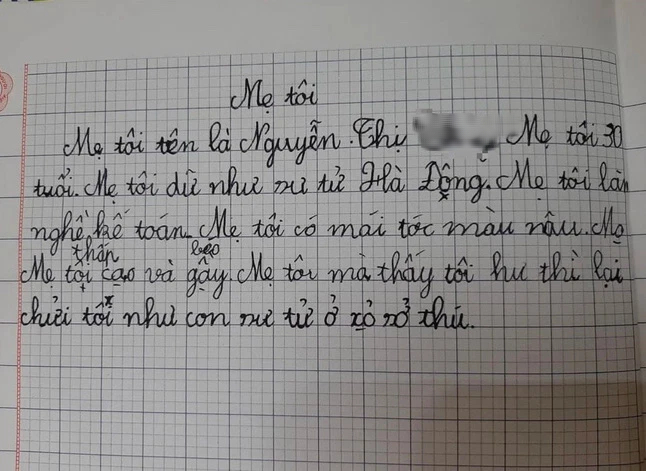 Mẹ tôi
Mẹ tôi tên là Nguyễn Thị Mẹ tôi 30
tuổi. Mẹ tôi dữ như sư tử Hà Đông. Mẹ tôi làm
nghề kế toán. Mẹ tôi có mái tóc màu nâu. Mẹ
thấp béo
Mẹ tôi cao và gầy. Mẹ tôi mà thấy tôi hư thì lại
chửi tôi như con sư tử ở sở thú.